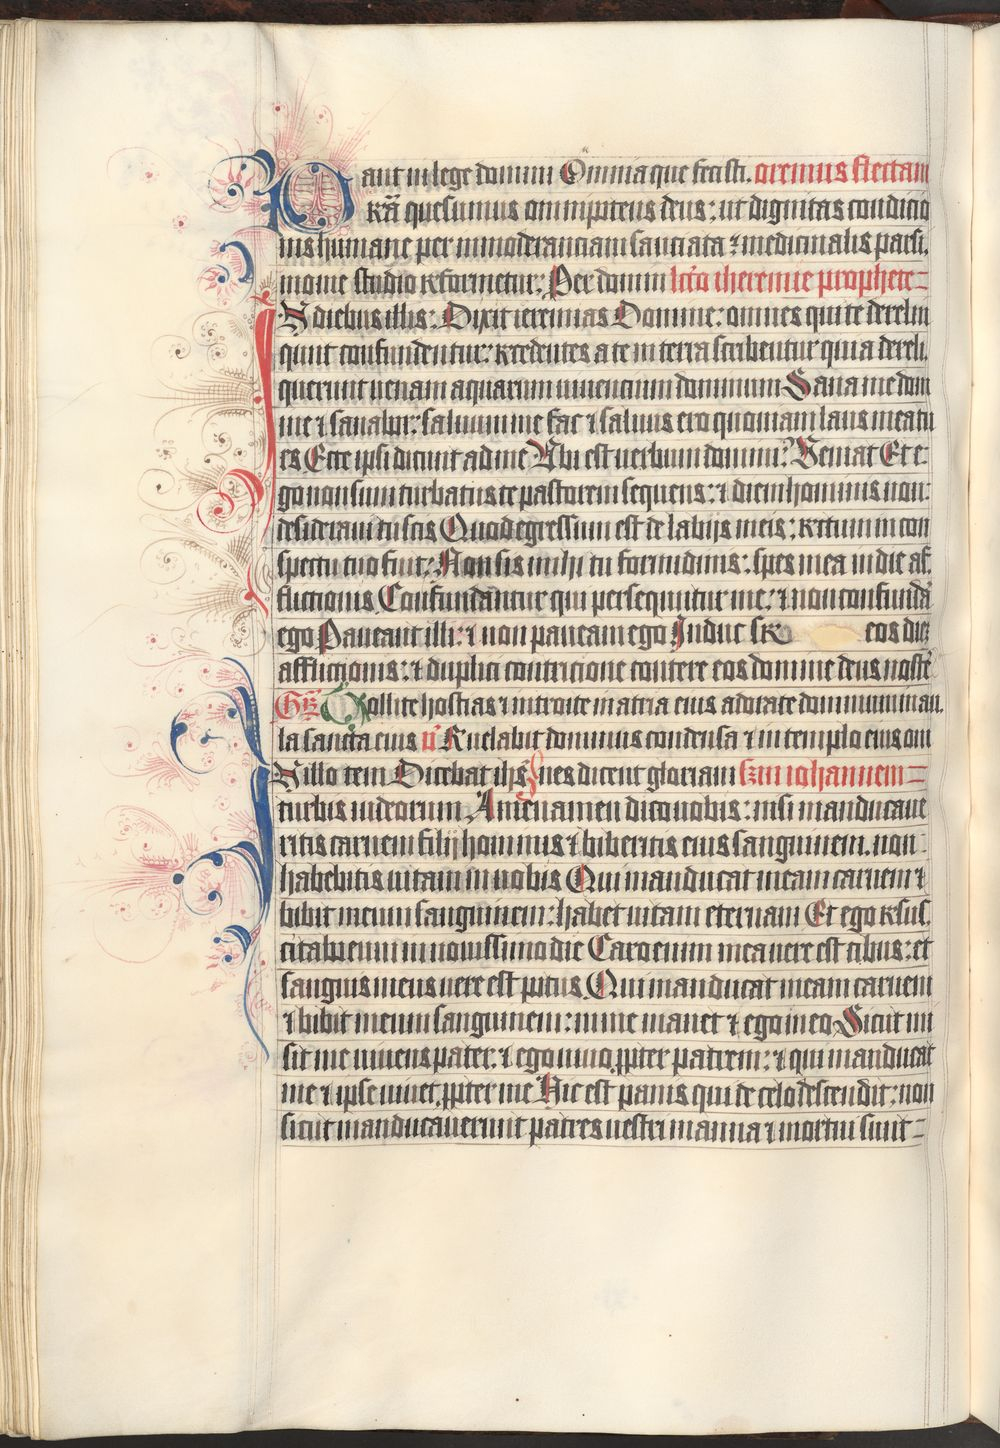 lant in lege domini Omnia que fecisti. oremus flectam
P rā quesumus omnipotens deus: ut dignitas condicio
nis humane per inmoderanciam sauciata ⁊ medicinalis parsi.
monie studio reformetur. Per domin lc̄o iheremie prophete
In diebus illis: Dixit ieremias Domine: omnes qui te derelin
quunt confundentur: recedentes a te in terra scribentur quia dereli
querunt uenam aquarum uiuencium dominum Sana me domi
ne ⁊ sanabor: saluum me fac ⁊ saluus ero quoniam laus mea tu
es Ecce ipsi dicunt ad me Ubi est uerbum domini? Ueniat Et e:
go non sum turbatus te pastorem sequens: ⁊ diem hominis non:
desideraui tu scis Quod egressum est de labijs meis: rectum in con
spectu tuo fuit: Non sis michi tu formidinis: spes mea in die af.
flictionis Confundantur qui persequuntur me: ⁊ non confundā
ego Paueant illi: ⁊ non paueam ego Induc sr eos diē
afflictionis: ⁊ duplici contricione contere eos domine deus nostē
Gr̄ Tollite hostias ⁊ introite in atria eius adorate dominum in au.
la sancta eius v̄ Reuelabit dominus condensa ⁊ in templo eius om
In illo tem Dicebat ihs̄ nes dicent gloriam scdm iohannem
turbis iudeorum Amen amen dico uobis: nisi manducaue
ritis carnem filij hominis ⁊ biberitis eius sanguinem. non
habebitis uitam in uobis Qui manducat meam carnem ⁊
bibit meum sanguinem: habet uitam eternam Et ego resus.
citabo eum in nouissimo die Caro enim mea uere est cibus: et
sanguis meus uere est potus Qui manducat meam carnem
⁊ bibit meum sanguinem: in me manet ⁊ ego in eo Sicut mi
sit me uiuens pater: ⁊ ego uiuo ꝓpter patrem: ⁊ qui manducat
me ⁊ ipse uiuet ꝓpter me Hic est panis qui de celo descendit: non
sicut manducauerunt patres uestri manna ⁊ mortui sunt